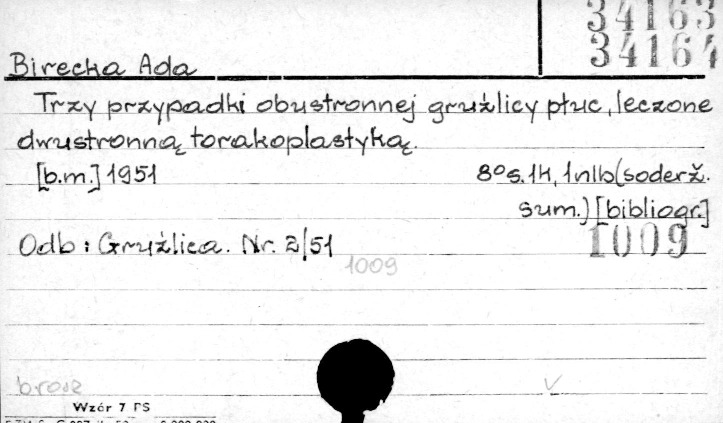 34163
34164
Birecka Ada
Trzy przypadki obustronnej gruźlicy płuc, leczone
dwustronną torakoplastyką.
[b.m.] 1951 8°s.14, 1nlb(soderż.
sum.) [bibliogr.]
Odb: Gruźlica. Nr. 2/51 1009
1009
brosz
Wzór 7 PS